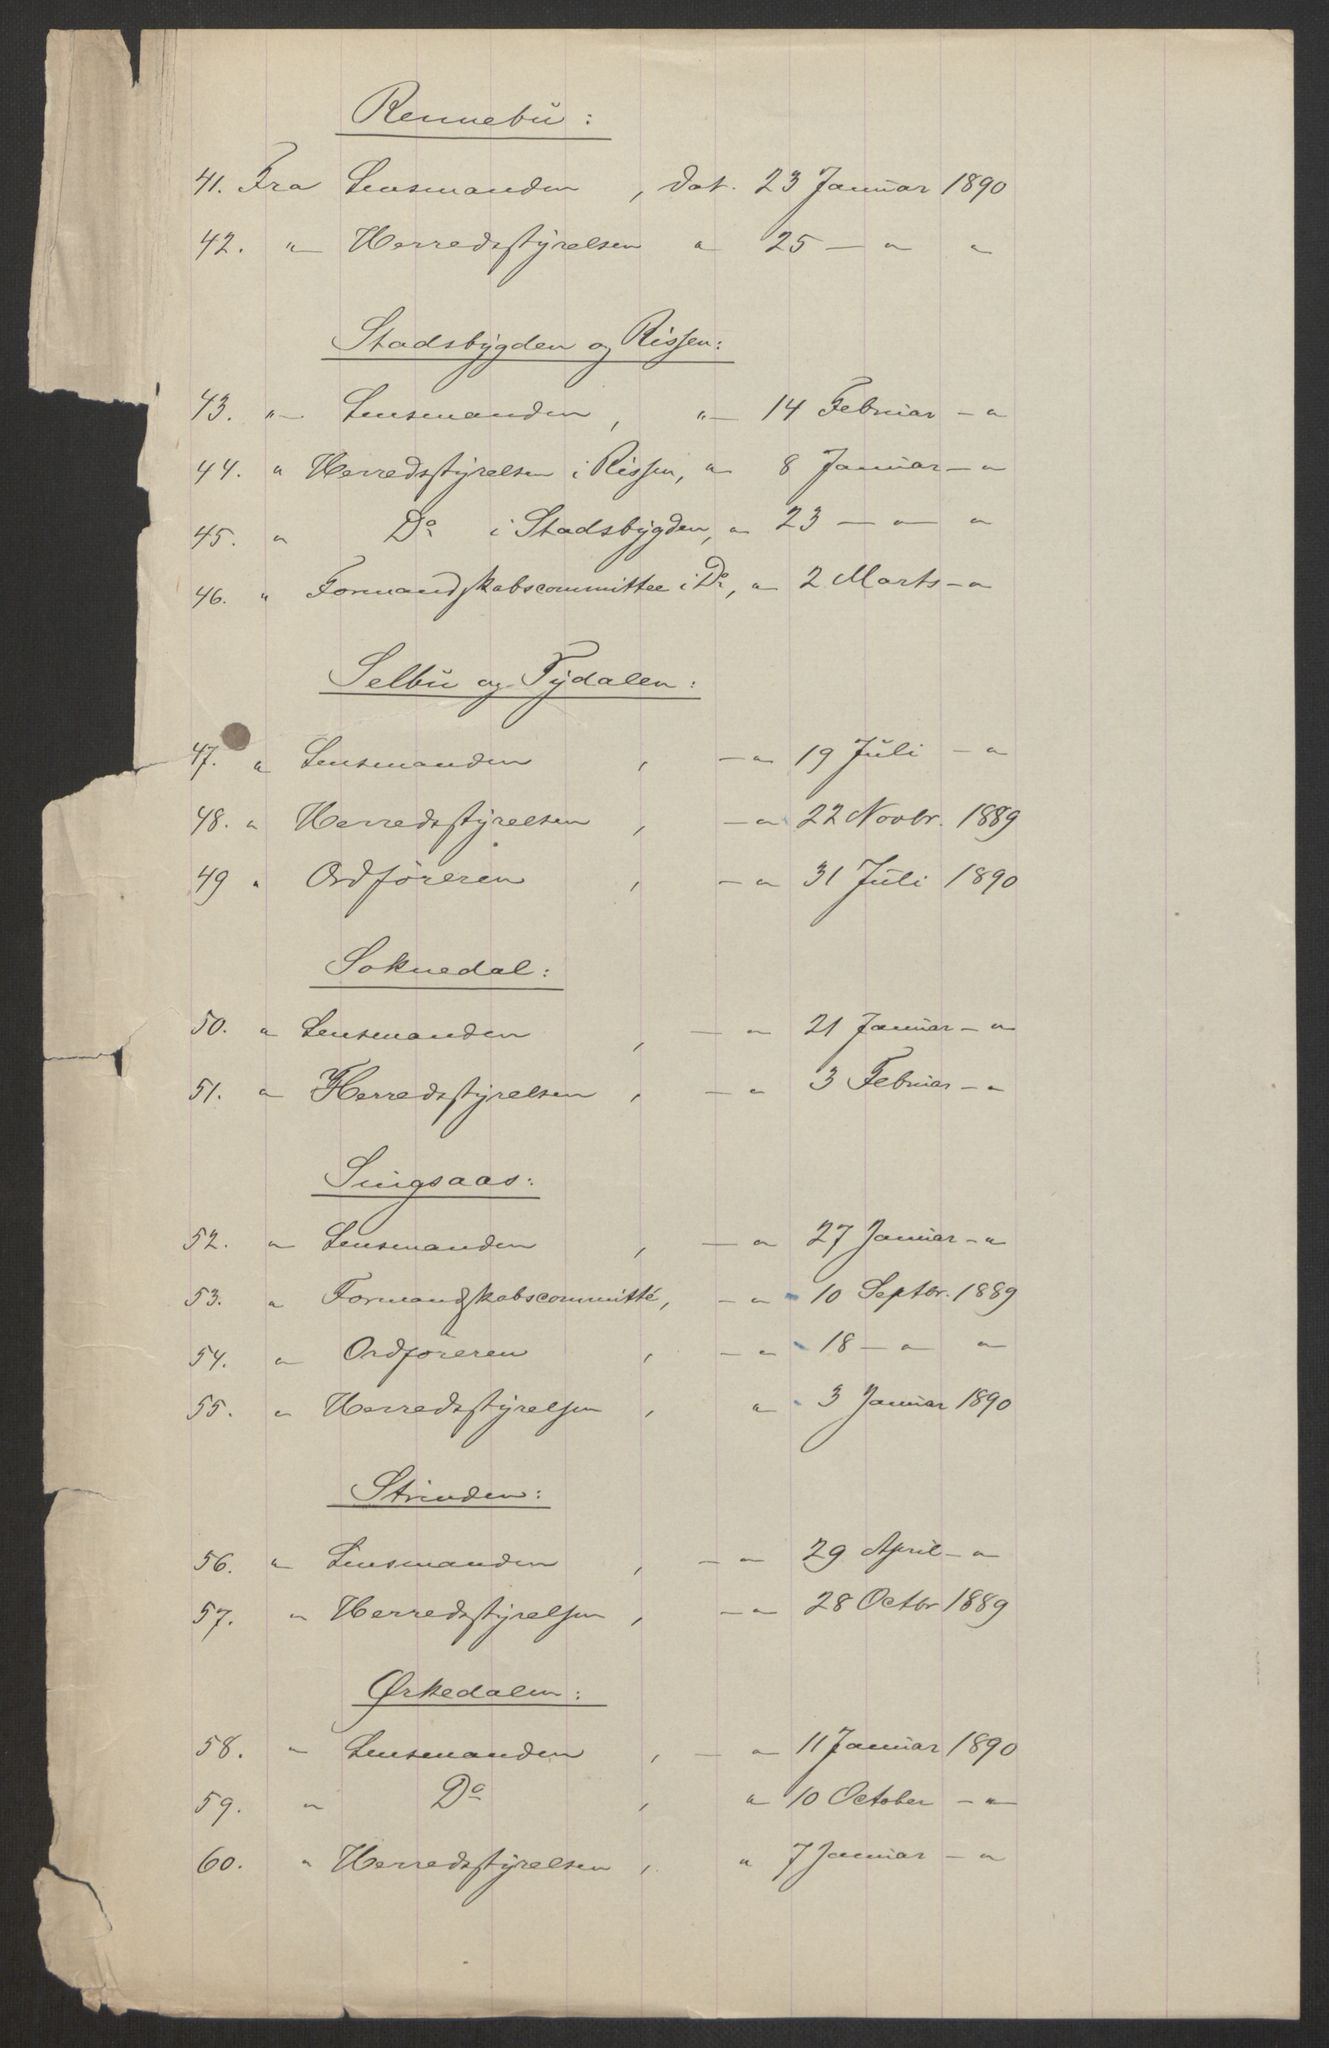 Rennebu:
41. Fra Lensmanden, dat. 23 Januar 1890
42. " Herredsstyrelsen " 25 — " "
Stadsbygden og Rissen:
43. " Lensmanden, " 14 Februar — "
44. " Herredsstyrelsen i Rissen, " 8 Januar — "
45. " Do i Stadsbygden, " 23 — " — "
46. " Formandskabscommittee i Do, " 2 Marts — "
Selbu og Tydalen:
47. " Lensmanden, — " 19 Juli — "
48. " Herredsstyrelsen, — " 22 Novbr. 1889
49 " Ordføreren, — " 31 Juli 1890
Soknedal:
50. " Lensmanden, — " 21 Januar — "
51. " Herredsstyrelsen, — " 3 Februar — "
Singsaas:
52. " Lensmanden, — " 27 Januar — "
53. " Formandskabscommitté, — " 10 Septbr. 1889
54. " Ordføreren, — " 18 — " "
55. " Herredsstyrelsen, " 3 Januar 1890
Strinden:
56. " Lensmanden, — " 29 April — "
57. " Herredsstyrelsen, — " 28 Octbr 1889
Ørkedalen:
58. " Lensmanden, — " 11 Januar 1890
59. " Do, " 10 October — "
60. " Herredsstyrelsen, " 7 Januar — "